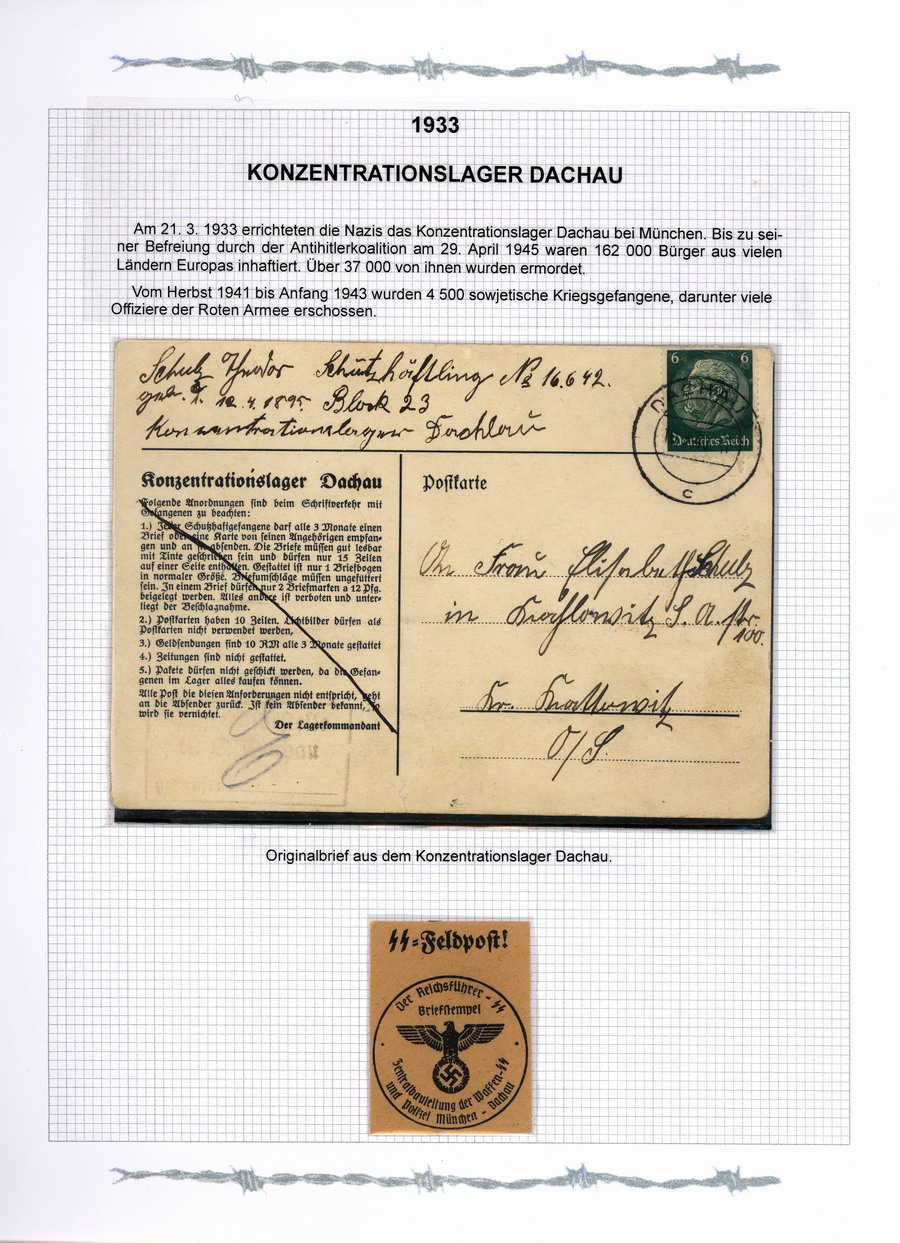 1933
KONZENTRATIONSLAGER DACHAU
Am 21. 3. 1933 errichteten die Nazis das Konzentrationslager Dachau bei München. Bis zu sei-
ner Befreiung durch der Antihitlerkoalition am 29. April 1945 waren 162 000 Bürger aus vielen
Ländern Europas inhaftiert. Über 37 000 von ihnen wurden ermordet.
Vom Herbst 1941 bis Anfang 1943 wurden 4 500 sowjetische Kriegsgefangene, darunter viele
Offiziere der Roten Armee erschossen.
Schulz Theodor Schutzhäftling № 16.642.
geb. 12.4.1895 Block 23
Konzentrationslager Dachau
6 6
Deutsches Reich
DACHAU
c
Konzentrationslager Dachau
Folgende Anordnungen sind beim Schriftverkehr mit
Gefangenen zu beachten:
1.) Jeder Schutzhaftgefangene darf alle 3 Monate einen
Brief oder eine Karte von seinen Angehörigen empfan-
gen und an sie absenden. Die Briefe müssen gut lesbar
mit Tinte geschrieben sein und dürfen nur 15 Zeilen
auf einer Seite enthalten. Gestattet ist nur 1 Briefbogen
in normaler Größe. Briefumschläge müssen ungefüttert
sein. In einem Brief dürfen nur 2 Briefmarken a 12 Pfg.
beigelegt werden. Alles andere ist verboten und unter-
liegt der Beschlagnahme.
2.) Postkarten haben 10 Zeilen. Lichtbilder dürfen als
Postkarten nicht verwendet werden,
3.) Geldsendungen sind 10 RM alle 3 Monate gestattet
4.) Zeitungen sind nicht gestattet.
5.) Pakete dürfen nicht geschickt werden, da die Gefan-
genen im Lager alles kaufen können.
Alle Post die diesen Anforderungen nicht entspricht, geht
an die Absender zurück. Ist kein Absender bekannt, so
wird sie vernichtet.
Der Lagerkommandant
Postkarte
An Frau Elisabeth Schulz
in S. A. str.
100.
Kr. Kattowitz
O/S.
Originalbrief aus dem Konzentrationslager Dachau.
SS-Feldpost!
Der Reichsführer-SS
Briefstempel
Zentralbauleitung der Waffen-SS
und Polizei München - Dachau